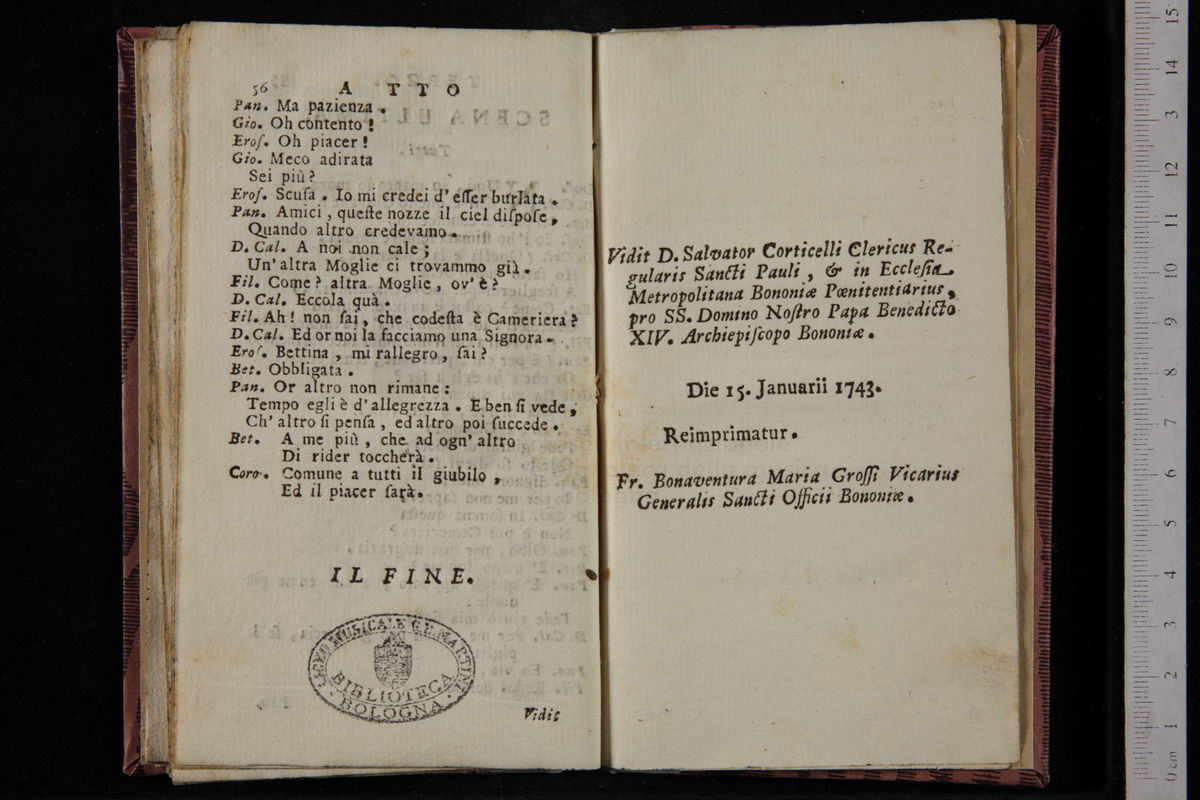 56 ATTO
Pan. Ma pazienza.
Gio. Oh contento!
Eroſ. Oh piacer!
Gio. Meco adirata
Sei più?
Eroſ. Scuſa. Io mi credei d'eſſer burlata.
Pan. Amici, queſte nozze il ciel diſpoſe,
Quando altro credevamo.
D. Cal. A noi non cale;
Un'altra Moglie ci trovammo già.
Fil. Come? altra Moglie, ov'è?
D. Cal. Eccola quà.
Fil. Ah! non ſai, che codeſta è Cameriera?
D. Cal. Ed or noi la facciamo una Signora.
Eroſ. Bettina, mi rallegro, ſai?
Bet. Obbligata.
Pan. Or altro non rimane:
Tempo egli è d'allegrezza. E ben ſi vede,
Ch'altro ſi penſa, ed altro poi ſuccede.
Bet. A me più, che ad ogn'altro
Di rider toccherà.
Coro. Comune a tutti il giubilo,
Ed il piacer ſarà.
IL FINE.
LICEO MUSICALE G.B. MARTINI
BIBLIOTECA
BOLOGNA
Vidit
Vidit D. Salvator Corticelli Clericus Re-
gularis Sancti Pauli, & in Eccleſia
Metropolitana Bononiæ Pœnitentiarius,
pro SS. Domino Noſtro Papa Benedicto
XIV. Archiepiſcopo Bononiæ.
Die 15. Januarii 1743.
Reimprimatur.
Fr. Bonaventura Maria Groſſi Vicarius
Generalis Sancti Officii Bononiæ.
15
14
13
12
11
10
9
8
7
6
5
4
3
2
1
0 cm